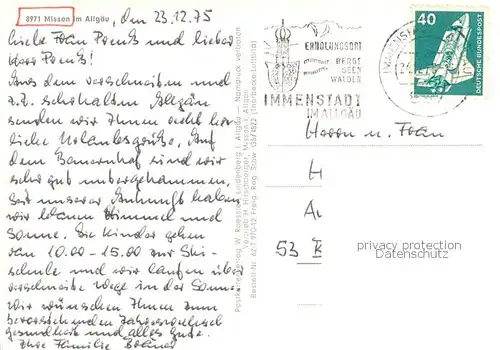 8971 Missen im Allgäu, den 23.12.75
liebe Frau Preuß und lieber
Herr Preuß!
Aus dem verschneiten und
z.Z. schöhalten Allgäu
senden wir Ihnen recht herz
liche Urlaubsgrüße. Auf
dem Bauernhof sind wir
sehr gut untergekommen,
seit unserer Ankunft haben
wir blauen Himmel und
Sonne. Die Kinder gehen
von 10.00 - 15.00 zur Ski-
schule und wir laufen über
verschneite Wege in der Sonne
wir wünschen Ihnen zum
bevorstehenden Jahreswechsel
gesundheit und alles Gute.
Ihre Familie
Nachdruck verboten
ERHOLUNGSORT
BERGE
SEEN
WÄLDER
IMMENSTADT
IM ALLGÄU
40
DEUTSCHE BUNDESPOST
Herrn u. Frau
H
A
53 B
privacy protection
Datenschutz